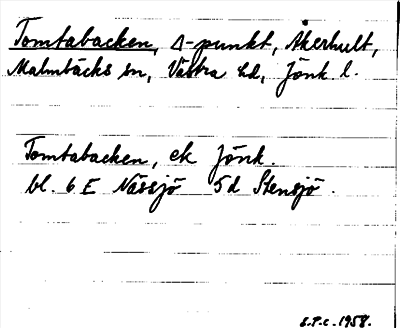 Tomtabacken, Δ-punkt, Åkerhult,
Malmbäcks sn, Västra hd, Jönk l.
Tomtabacken, ek Jönk.
bl. 6 E Nässjö 5d Stensjö.
1958.